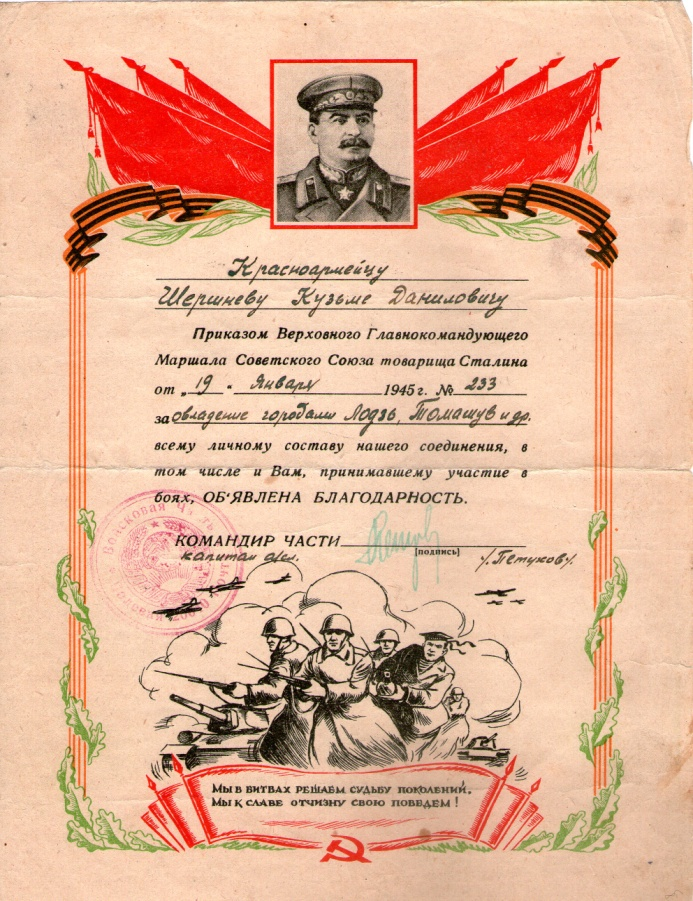 Красноармейцу
Шершневу Кузьме Даниловичу
Приказом Верховного Главнокомандующего
Маршала Советского Союза товарища Сталина
от „19" января 1945 г. № 233
за овладение городами Лодзь, Томашув и др.
всему личному составу нашего соединения, в
том числе и Вам, принимавшему участие в
боях, ОБ'ЯВЛЕНА БЛАГОДАРНОСТЬ.
КОМАНДИР ЧАСТИ
[подпись]
капитан /Петухов/.
Войсковая Часть
Мы в битвах решаем судьбу поколений,
Мы к славе отчизну свою поведем!